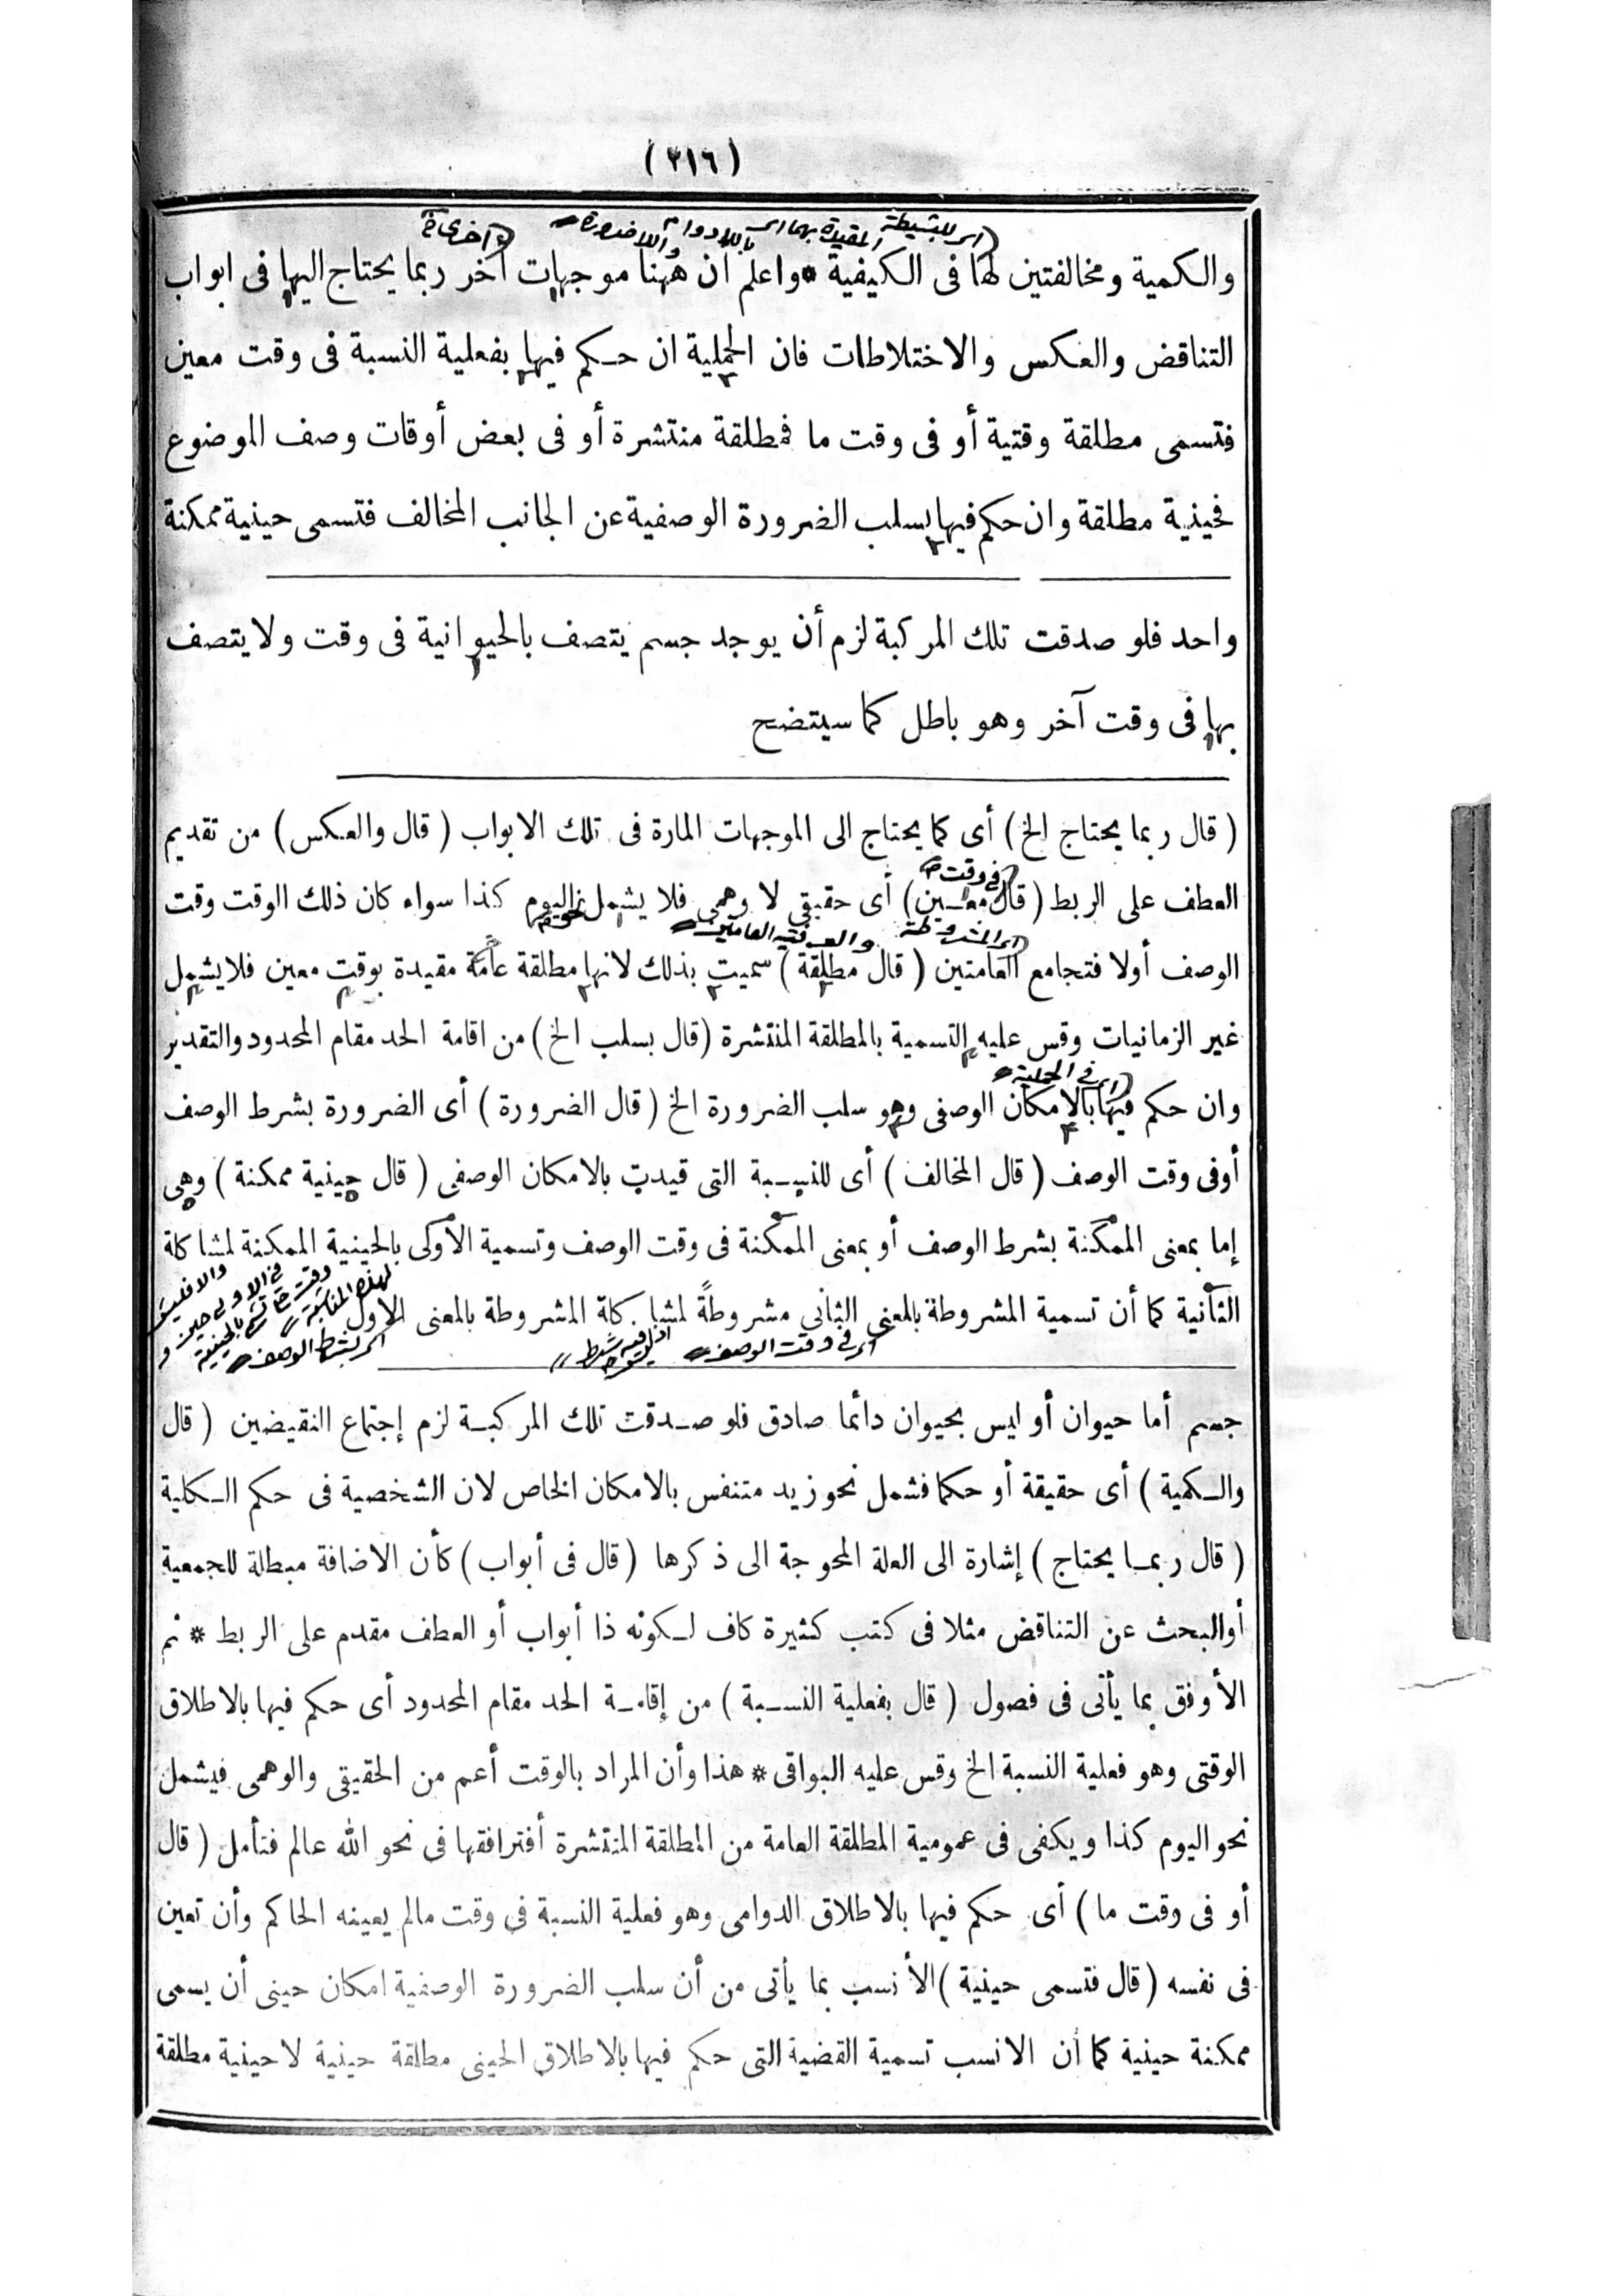 (٢١٦)
والكمية ومخالفتين لها فى الكيفية * واعلم ان ههنا موجهات أخر ربما يحتاج اليها فى ابواب
التناقض والعكس والاختلاطات فان الحملية ان حكم فيها بفعلية النسبة فى وقت معين
فتسمى مطلقة وقتية أو فى وقت ما فمطلقة منتشرة أو فى بعض أوقات وصف الموضوع
فحينية مطلقة وان حكم فيها بسلب الضرورة الوصفية عن الجانب المخالف فتسمى حينية ممكنة
واحد فلو صدقت تلك المركبة لزم أن يوجد جسم يتصف بالحيوانية فى وقت ولا يتصف
بها فى وقت آخر وهو باطل كما سيتضح
( قال ربما يحتاج الخ ) أى كما يحتاج الى الموجهات المارة فى تلك الابواب ( قال والعكس ) من تقديم
فى وقت
العطف على الربط ( قال معين ) أى حقيقى لا وهمى فلا يشمل نحو اليوم كذا سواء كان ذلك الوقت وقت
الوصف أولا فتجامع العامتين ( قال مطلقة ) سميت بذلك لانها مطلقة عامة مقيدة بوقت معين فلا يشمل
غير الزمانيات وقس عليه التسمية بالمطلقة المنتشرة ( قال بسلب الخ ) من اقامة الحد مقام المحدود والتقدير
وان حكم فيها بالامكان الوصفى وهو سلب الضرورة الخ ( قال الضرورة ) أى الضرورة بشرط الوصف
أوفى وقت الوصف ( قال المخالف ) أى للنسبة التى قيدت بالامكان الوصفى ( قال حينية ممكنة ) وهى
إما بمعنى الممكنة بشرط الوصف أو بمعنى الممكنة فى وقت الوصف وتسمية الأولى بالحينية الممكنة لمشاكلة
الثانية كما أن تسمية المشروطة بالمعنى الثانى مشروطة لمشاكلة المشروطة بالمعنى الاول
جسم أما حيوان أو ليس بحيوان دائما صادق فلو صدقت تلك المركبة لزم إجتماع النقيضين ( قال
والكمية ) أى حقيقة أو حكما فشمل نحو زيد متنفس بالامكان الخاص لان الشخصية فى حكم الكلية
( قال ربما يحتاج ) إشارة الى العلة المحوجة الى ذكرها ( قال فى أبواب ) كأن الاضافة مبطلة للجمعية
أوالبحث عن التناقض مثلا فى كتب كثيرة كاف لكونه ذا أبواب أو العطف مقدم على الربط * ثم
الأوفق بما يأتى فى فصول ( قال بفعلية النسبة ) من إقامة الحد مقام المحدود أى حكم فيها بالاطلاق
الوقتى وهو فعلية النسبة الخ وقس عليه البواقى * هذا وأن المراد بالوقت أعم من الحقيقى والوهمى فيشمل
نحو اليوم كذا ويكفى فى عمومية المطلقة العامة من المطلقة المنتشرة أفتراقها فى نحو الله عالم فتأمل ( قال
أو فى وقت ما ) أى حكم فيها بالاطلاق الدوامى وهو فعلية النسبة فى وقت مالم يعينه الحاكم وأن تعين
فى نفسه ( قال فتسمى حينية ) الأنسب بما يأتى من أن سلب الضرورة الوصفية امكان حينى أن يسمى
ممكنة حينية كما أن الانسب تسمية القضية التى حكم فيها بالاطلاق الحينى مطلقة حينية لا حينية مطلقة